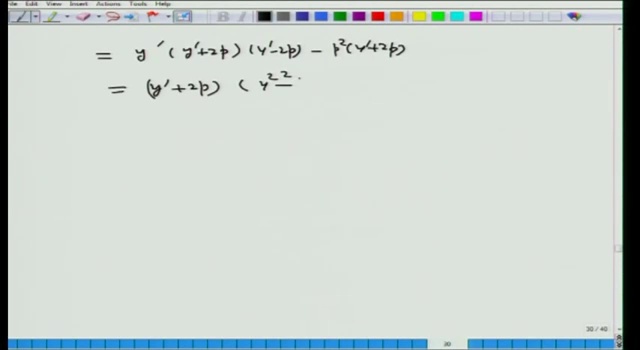 File Edit View Insert Actions Tools Help
= y' (y'+2p) (y'-2p) - p²(y'+2p)
= (y'+2p) (y²² -
30 / 40
30